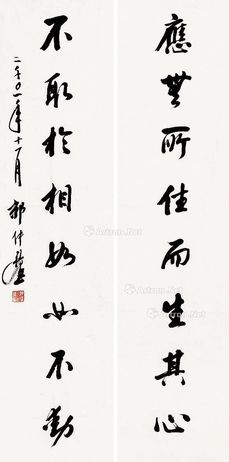 應無所住而生其心
不取於相如如不動
二千〇一年十一月 郭仲選